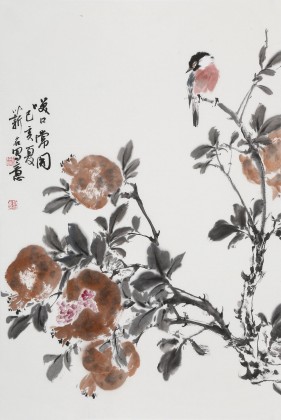 笑口常開
己亥夏
石寫意